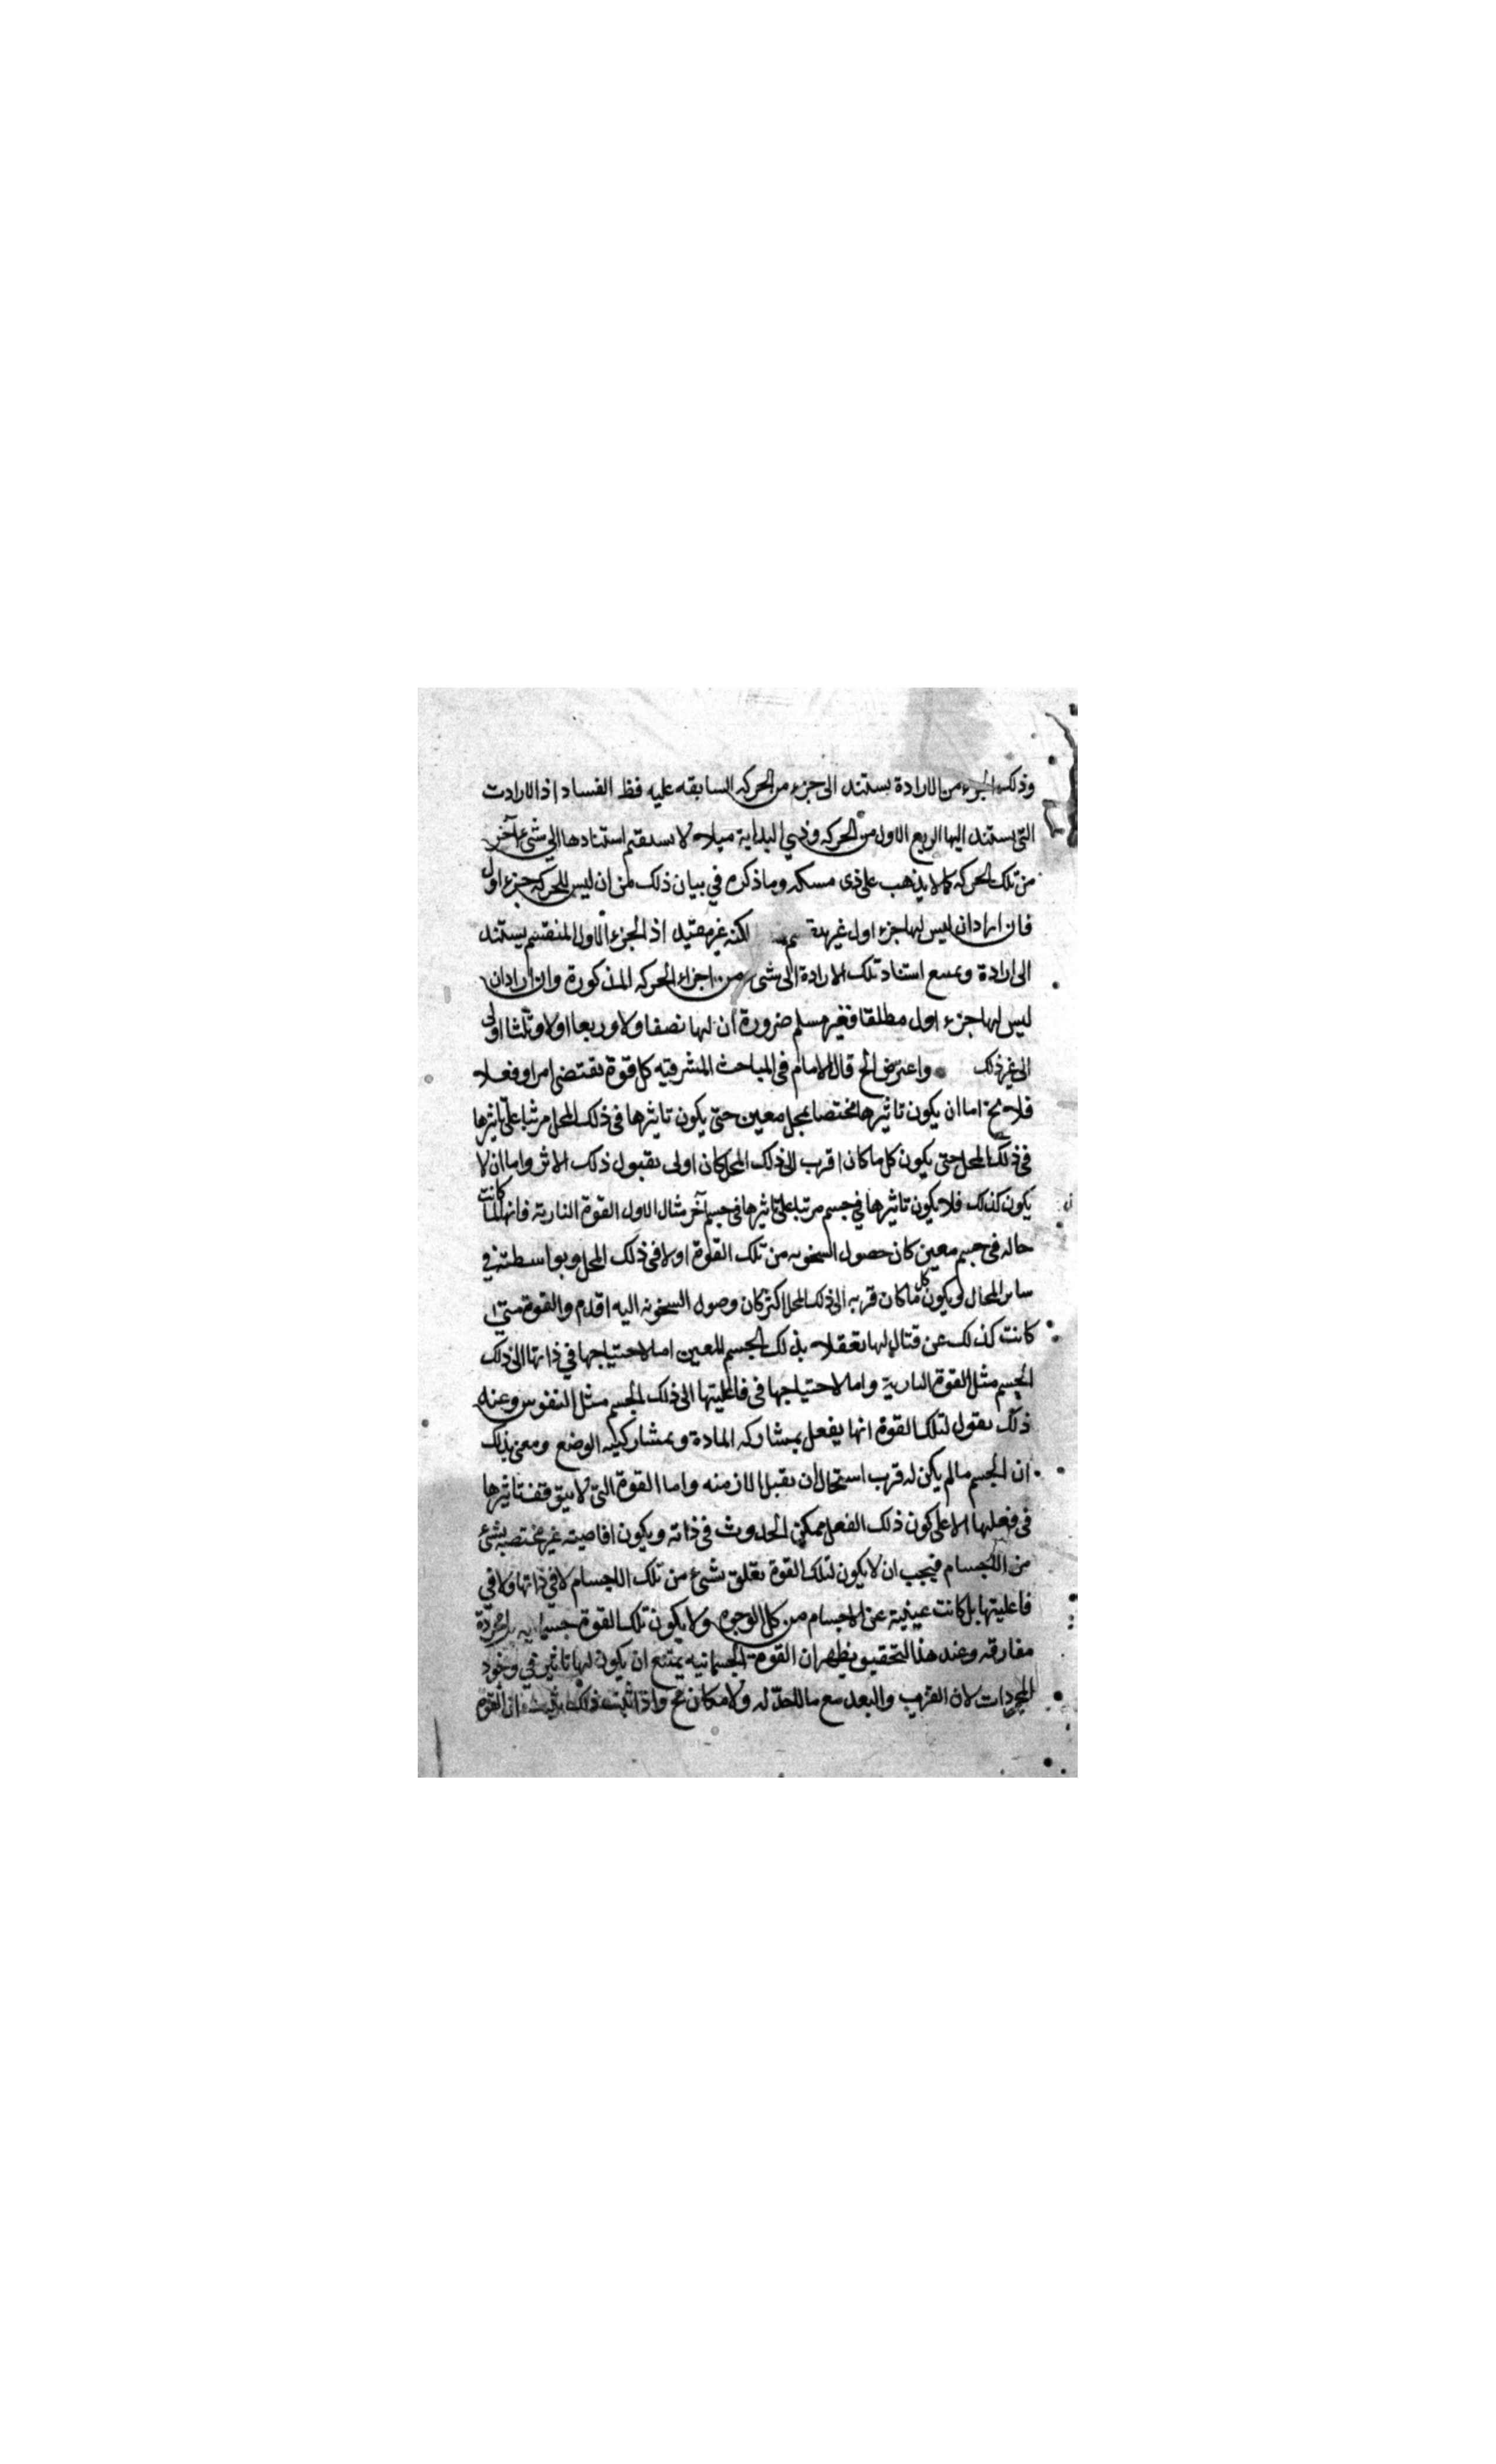 وذلك الجزء من الارادة يستند الى جزء من الحركه السابقه عليه فظ الفساد اذ الارادت
التى يستند اليها الربع الاول من الحركه وذى البداية ميلا لا يستقيم استنادها الى شىء آخر
من تلك الحركه كما لا يذهب على ذى مسكه وما ذكره في بيان ذلك من ان ليس للحركه جزء اول
فان اراد ان ليس لها جزء اول غير لكنه غير مفيد اذ الجزء الاول المنقسم يستند
الى ارادة ويمتنع استناد تلك الارادة الى شىء من اجزاء الحركه المذكورة وان اراد ان
ليس لها جزء اول مطلقا فغير مسلم ضرورة ان لها نصفا اولا وربعا اولا وثلثا اولى
الى غير ذلك واعترض الخ قال الامام فى المباحث المشرقيه كل قوة تقتضى امرا وفعلا
فلا يخ اما ان يكون تاثيرها مختصا بمحل معين حتى يكون تاثيرها فى ذلك المحل مرتبا على تاثيرها
فى ذلك المحل حتى يكون كل ما كان اقرب الى ذلك المحل كان اولى بقبول ذلك الاثر واما ان لا
يكون كذلك فلا يكون تاثيرها في جسم مرتبا على تاثيرها فى جسم آخر مثال الاول القوة النارية فانها لما كانت
حاله فى جسم معين كان حصول السخونه من تلك القوة اولا فى ذلك المحل وبواسطته في
ساير المحال ويكون كل ما كان قربه الى ذلك المحل اكثر كان وصول السخونه اليه اقدم والقوة متى
كانت كذلك لها تعقلا بذلك الجسم المعين اما لاحتياجها في ذاتها الى ذلك
الجسم مثل القوة النارية واما لاحتياجها فى فاعليتها الى ذلك الجسم مثل النفوس وعنه
ذلك يقول لتلك القوة انها يفعل بمشاركه المادة وبمشاركيه الوضع ومعنى ذلك
ان الجسم ما لم يكن له قرب استحال ان يقبل الاثر منه واما القوة التى لا يتوقف تاثيرها
فى فعليها الا على كون ذلك الفعل ممكن الحدوث فى ذاته ويكون افاضيته غير مختصه بشئ
من الاجسام فيجب ان لا يكون لتلك القوة تعلق بشىء من تلك الاجسام لا في ذاتها ولا في
فاعليتها بل كانت غينية عن الاجسام من كل الوجوه ولا يكون تلك القوة جسمانيه بل مجردة
مفارقه وعند هذا التحقيق يظهر ان القوة الجسمانيه يمتنع ان يكون لها تاثير في وجود
المجردات لان القرب والبعد مع ما لا حد له ولا مكان مح واذا ثبت ذلك ان القوة